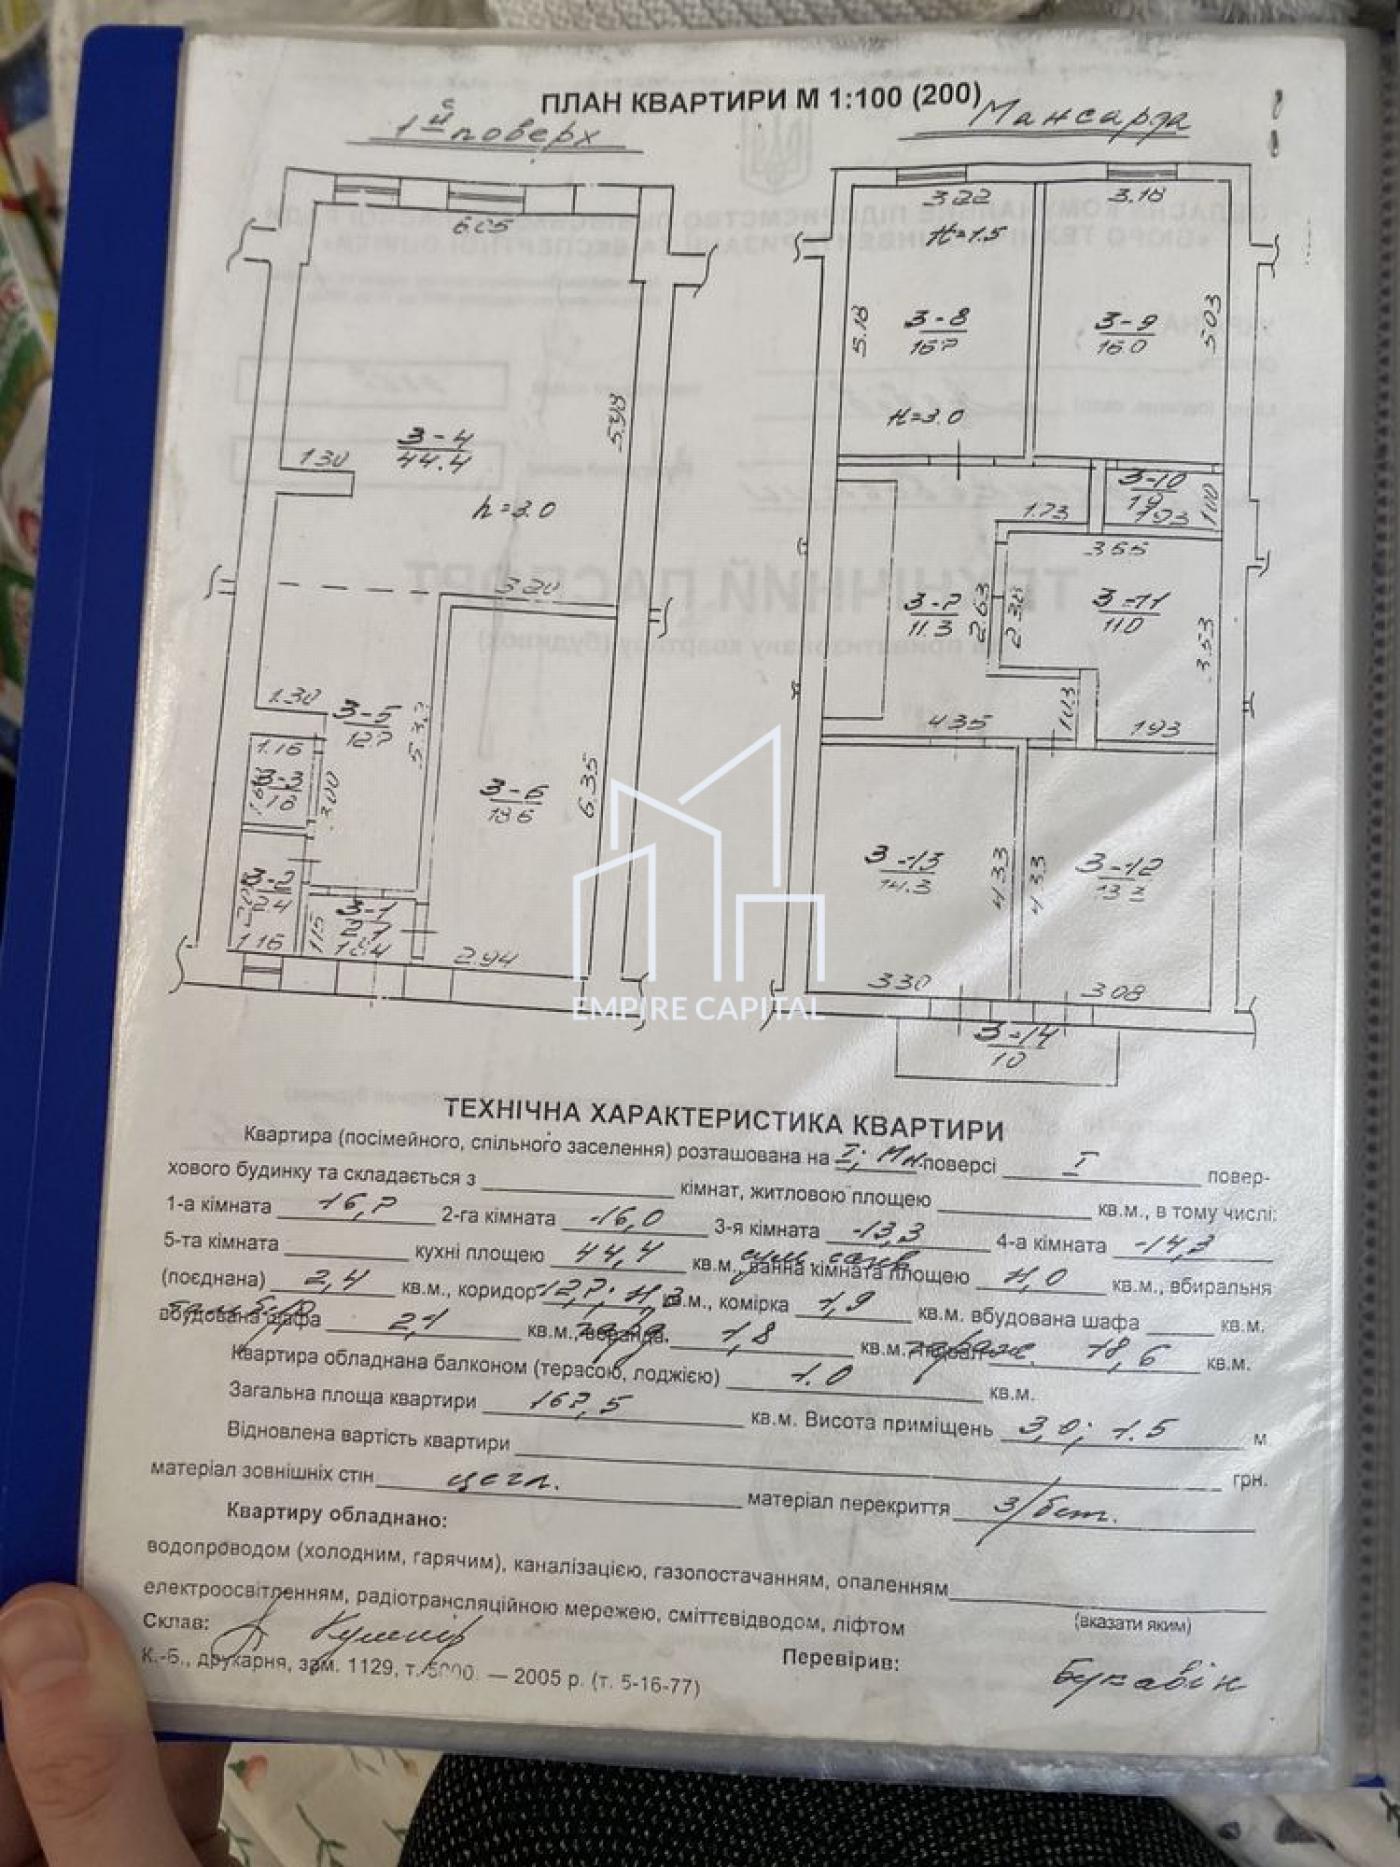 ПЛАН КВАРТИРИ М 1:100 (200)
1й поверх
Мансарда
6.05
3.22
3.18
H=1.5
5.18
3-8
16.7
3-9
16.0
5.03
5.98
3-4
44.4
1.30
H=3.0
h=3.0
3-10
1.9
1.93
1.00
1.73
3.55
3.20
3-7
11.3
2.63
2.30
3-11
11.0
3.53
1.30
3-5
12.7
5.37
1.03
4.35
1.93
1.16
3-3
1.8
3.00
3-6
18.6
6.35
3-13
14.3
4.33
4.33
3-12
13.3
3-2
2.4
1.16
1.15
3-1
2.1
2.94
3.30
3.08
3-14
1.0
EMPIRE CAPITAL
ТЕХНІЧНА ХАРАКТЕРИСТИКА КВАРТИРИ
Квартира (посімейного, спільного заселення) розташована на I; Мн. поверсі I повер-
хового будинку та складається з кімнат, житловою площею кв.м., в тому числі:
1-а кімната 16,7 2-га кімната 16,0 3-я кімната 13,3 4-а кімната 14,3
5-та кімната кухні площею 44,4 кв.м., ванна кімната площею 11,0 кв.м., вбиральня
(поєднана) 2,4 кв.м., коридор 12,7; 11,3 кв.м., комірка 1,9 кв.м. вбудована шафа кв.м.
вбудована шафа 2,1 кв.м., веранда. 1,8 кв.м. гараж. 18,6 кв.м.
Квартира обладнана балконом (терасою, лоджією) 1.0 кв.м.
Загальна площа квартири 167,5 кв.м. Висота приміщень 3,0; 1.5 м
Відновлена вартість квартири грн.
матеріал зовнішніх стін цегл. матеріал перекриття з/бет.
Квартиру обладнано:
водопроводом (холодним, гарячим), каналізацією, газопостачанням, опаленням
(вказати яким)
електроосвітленням, радіотрансляційною мережею, сміттєвідводом, ліфтом
Склав: Кушнір
Перевірив: Букавін
К.-Б., друкарня, зам. 1129, т. 5000. — 2005 р. (т. 5-16-77)